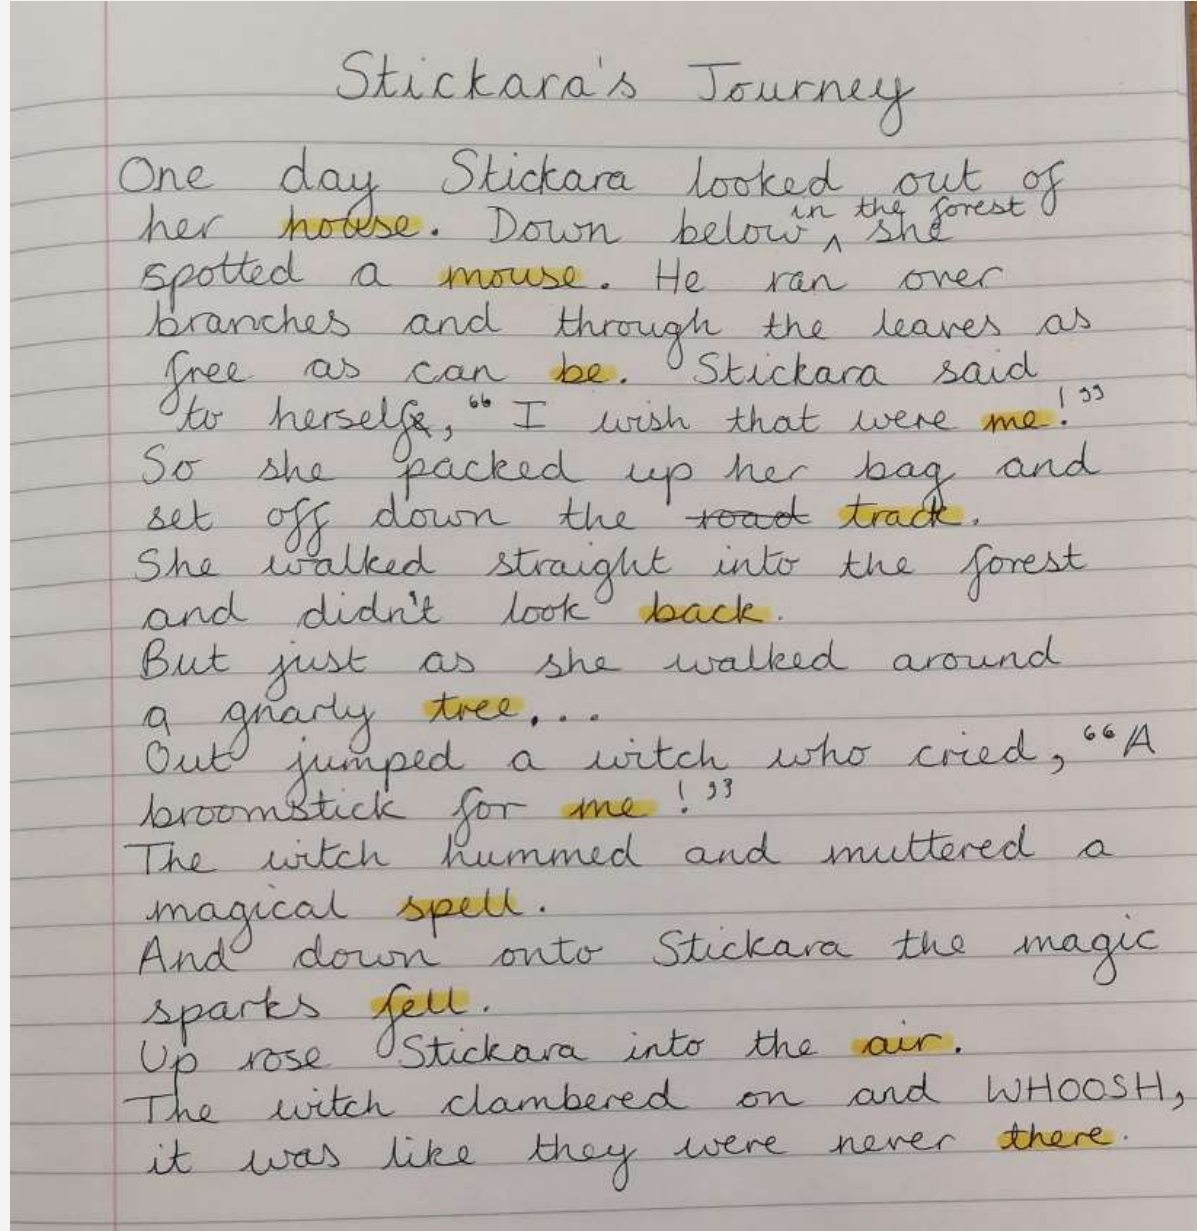 Stickara's Journey
One day Stickara looked out of
her house. Down below ^ in the forest she
spotted a mouse. He ran over
branches and through the leaves as
free as can be. Stickara said
to herself, "I wish that were me!"
So she packed up her bag and
set off down the road track.
She walked straight into the forest
and didn't look back.
But just as she walked around
a gnarly tree,...
Out jumped a witch who cried, "A
broomstick for me!"
The witch hummed and muttered a
magical spell.
And down onto Stickara the magic
sparks fell.
Up rose Stickara into the air.
The witch clambered on and WHOOSH,
it was like they were never there.